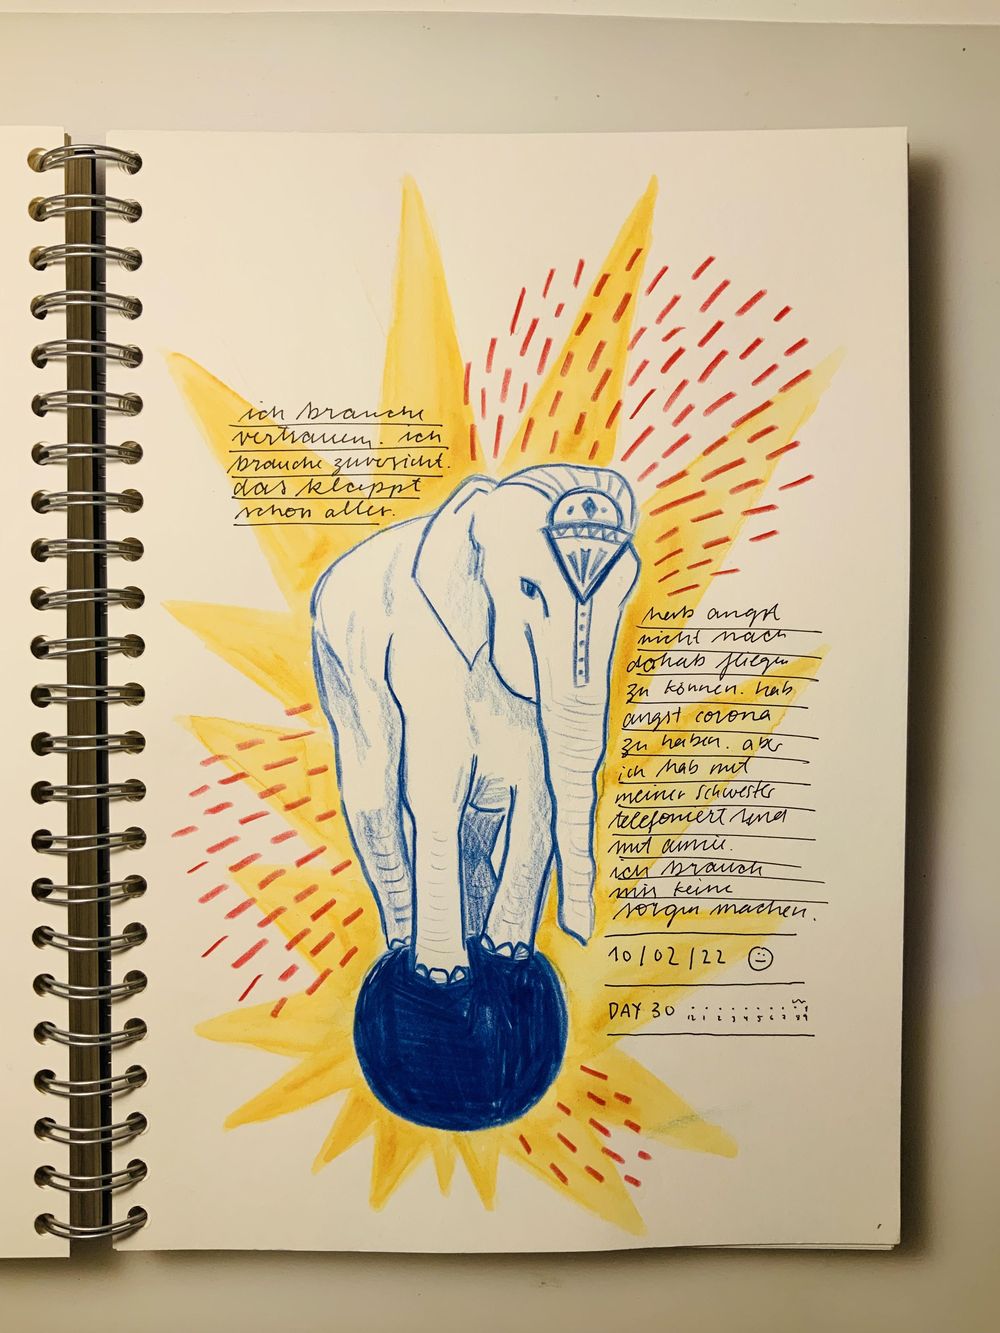 ich brauche
vertrauen. ich
brauche zuversicht.
das klappt
schon alles.
hab angst
nicht nach
dohab fliegen
zu können. hab
angst corona
zu haben. aber
ich hab mit
meiner schwester
telefoniert und
mit annie.
ich brauch
mir keine
sorgen machen.
10/02/22
DAY 30
12 1 2 3 4 5 6 7 8 9